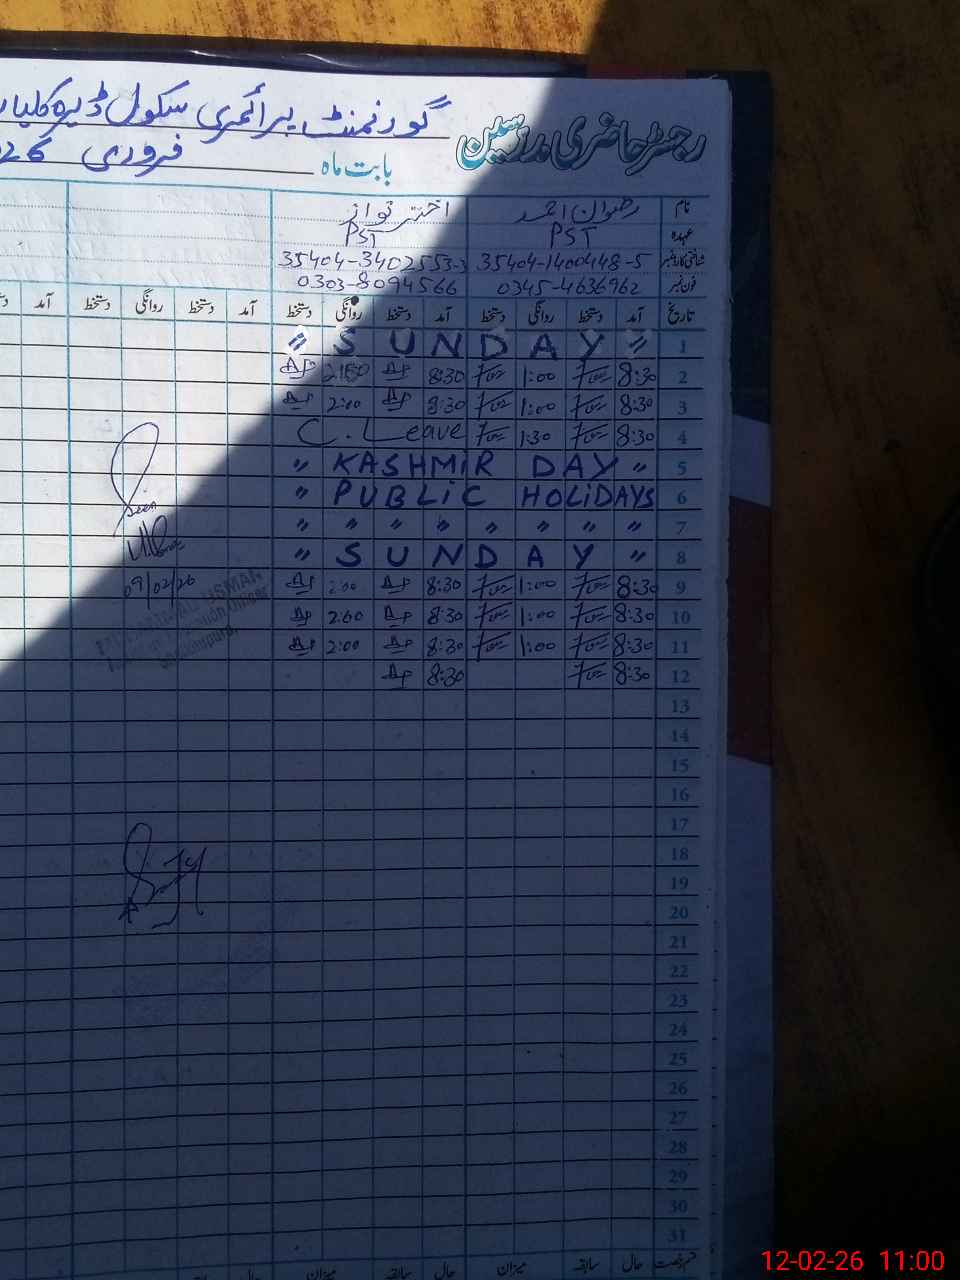 گورنمنٹ پرائمری سکول ڈیرہ کلیا
رجسٹر حاضری مدرسین
بابت ماہ فروری 26
نام رضوان احمد اختر نواز
عہدہ PST PST
شناختی کارڈ نمبر 35404-1400448-5 35404-3402553-3
فون نمبر 0345-4636962 0303-8094566
تاریخ آمد دستخط روانگی دستخط آمد دستخط روانگی دستخط آمد دستخط روانگی دستخط آمد
1 " S U N D A Y "
2 8:30 1:00 8:30 2:00
3 8:30 1:00 8:30 2:00
4 8:30 1:30 C. Leave
5 " KASHMIR DAY "
6 " PUBLIC HOLIDAYS
7 " " " " " " " "
8 " S U N D A Y "
9 8:30 1:00 8:30 2:00
10 8:30 1:00 8:30 2:00
11 8:30 1:00 8:30 2:00
12 8:30 8:30
Seen
09/02/26
13
14
15
16
17
18
19
20
21
22
23
24
25
26
27
28
29
30
31
حال سابقہ میزان حال سابقہ میزان حال سابقہ
12-02-26 11:00